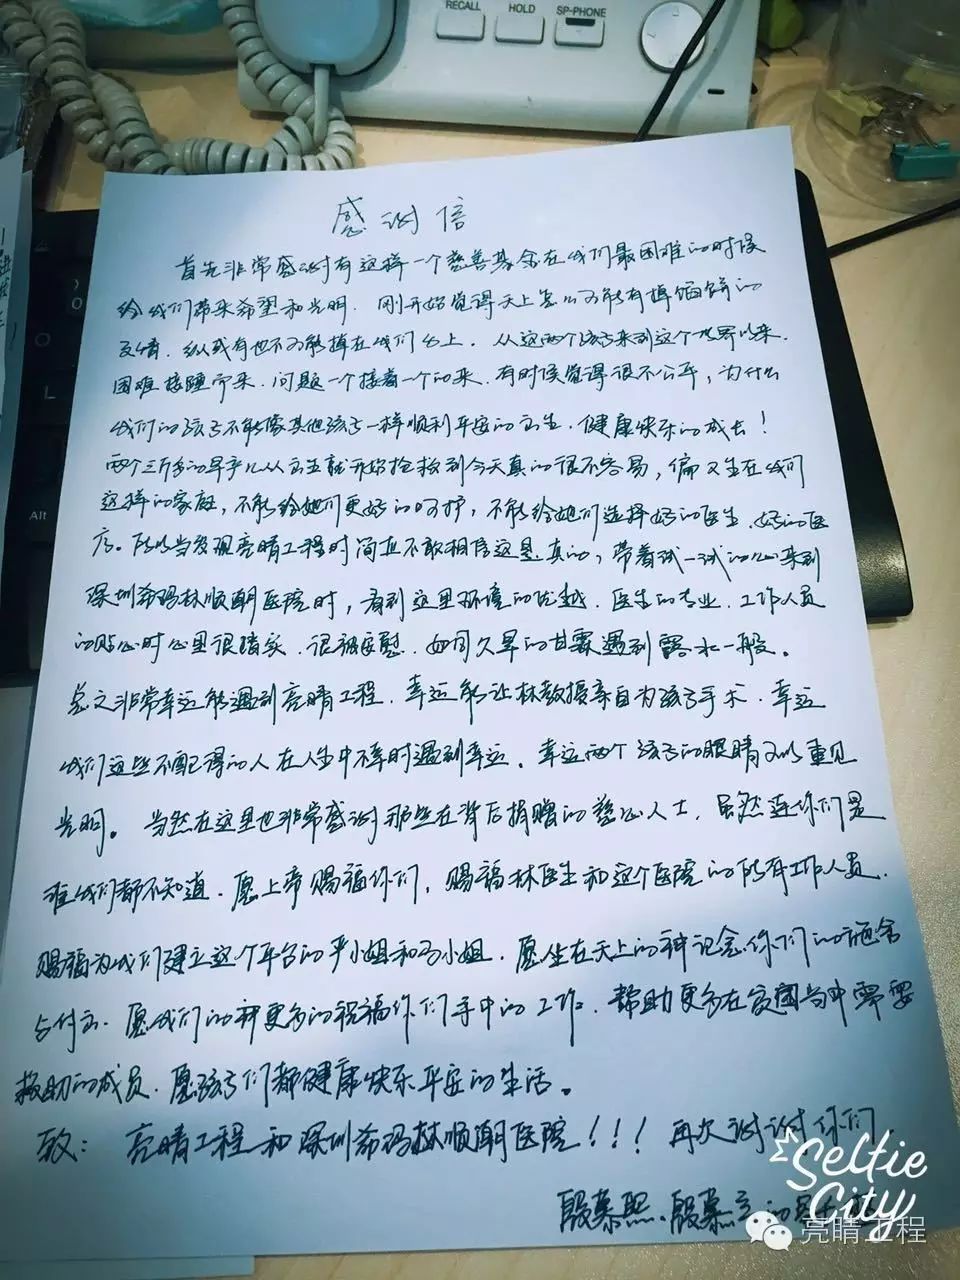 RECALL HOLD SP-PHONE
感谢信
首先非常感谢有这样一个慈善基金在我们最困难的时候
给我们带来希望和光明．刚开始觉得天上怎么可能有掉馅饼的
事情．纵或有也不可能掉在我们台上．从这两个孩子来到这个世界以来．
困难接踵而来．问题一个接着一个的来．有时候觉得很不公平，为什么
我们的孩子不能像其他孩子一样顺利平安的出生．健康快乐的成长！
两个三斤多的早产儿从出生就开始抢救到今天真的很不容易，偏又生在我们
这样的家庭，不能给她们更好的呵护，不能给她们选择好的医生．好的医
疗。所以当发现亮睛工程时简直不敢相信这是真的，带着试一试的心来到
深圳希玛林顺潮医院时，看到这里环境的优越．医生的专业．工作人员
的贴心时心里很踏实．很被安慰．如同久旱的甘霖遇到露水一般。
总之非常幸运能遇到亮睛工程．幸运能让林教授亲自为孩子手术．幸运
我们这些不配得的人在人生中不幸时遇到幸运．幸运两个孩子的眼睛可以重见
光明。当然在这里也非常感谢那些在背后捐赠的慈心人士．虽然连你们是
谁我们都不知道．愿上帝赐福你们，赐福林医生和这个医院的所有工作人员．
赐福为我们建立这个平台的严小姐和马小姐．愿坐在天上的神记念你们的施舍
与付出．愿我们的神更多的祝福你们手中的工作．帮助更多在贫困当中需要
救助的成员．愿孩子们都健康快乐平安的生活。
致：亮睛工程和深圳希玛林顺潮医院！！！再次谢谢你们．
殷慕熙．殷慕 的
Selfie City
亮睛工程
Alt
L